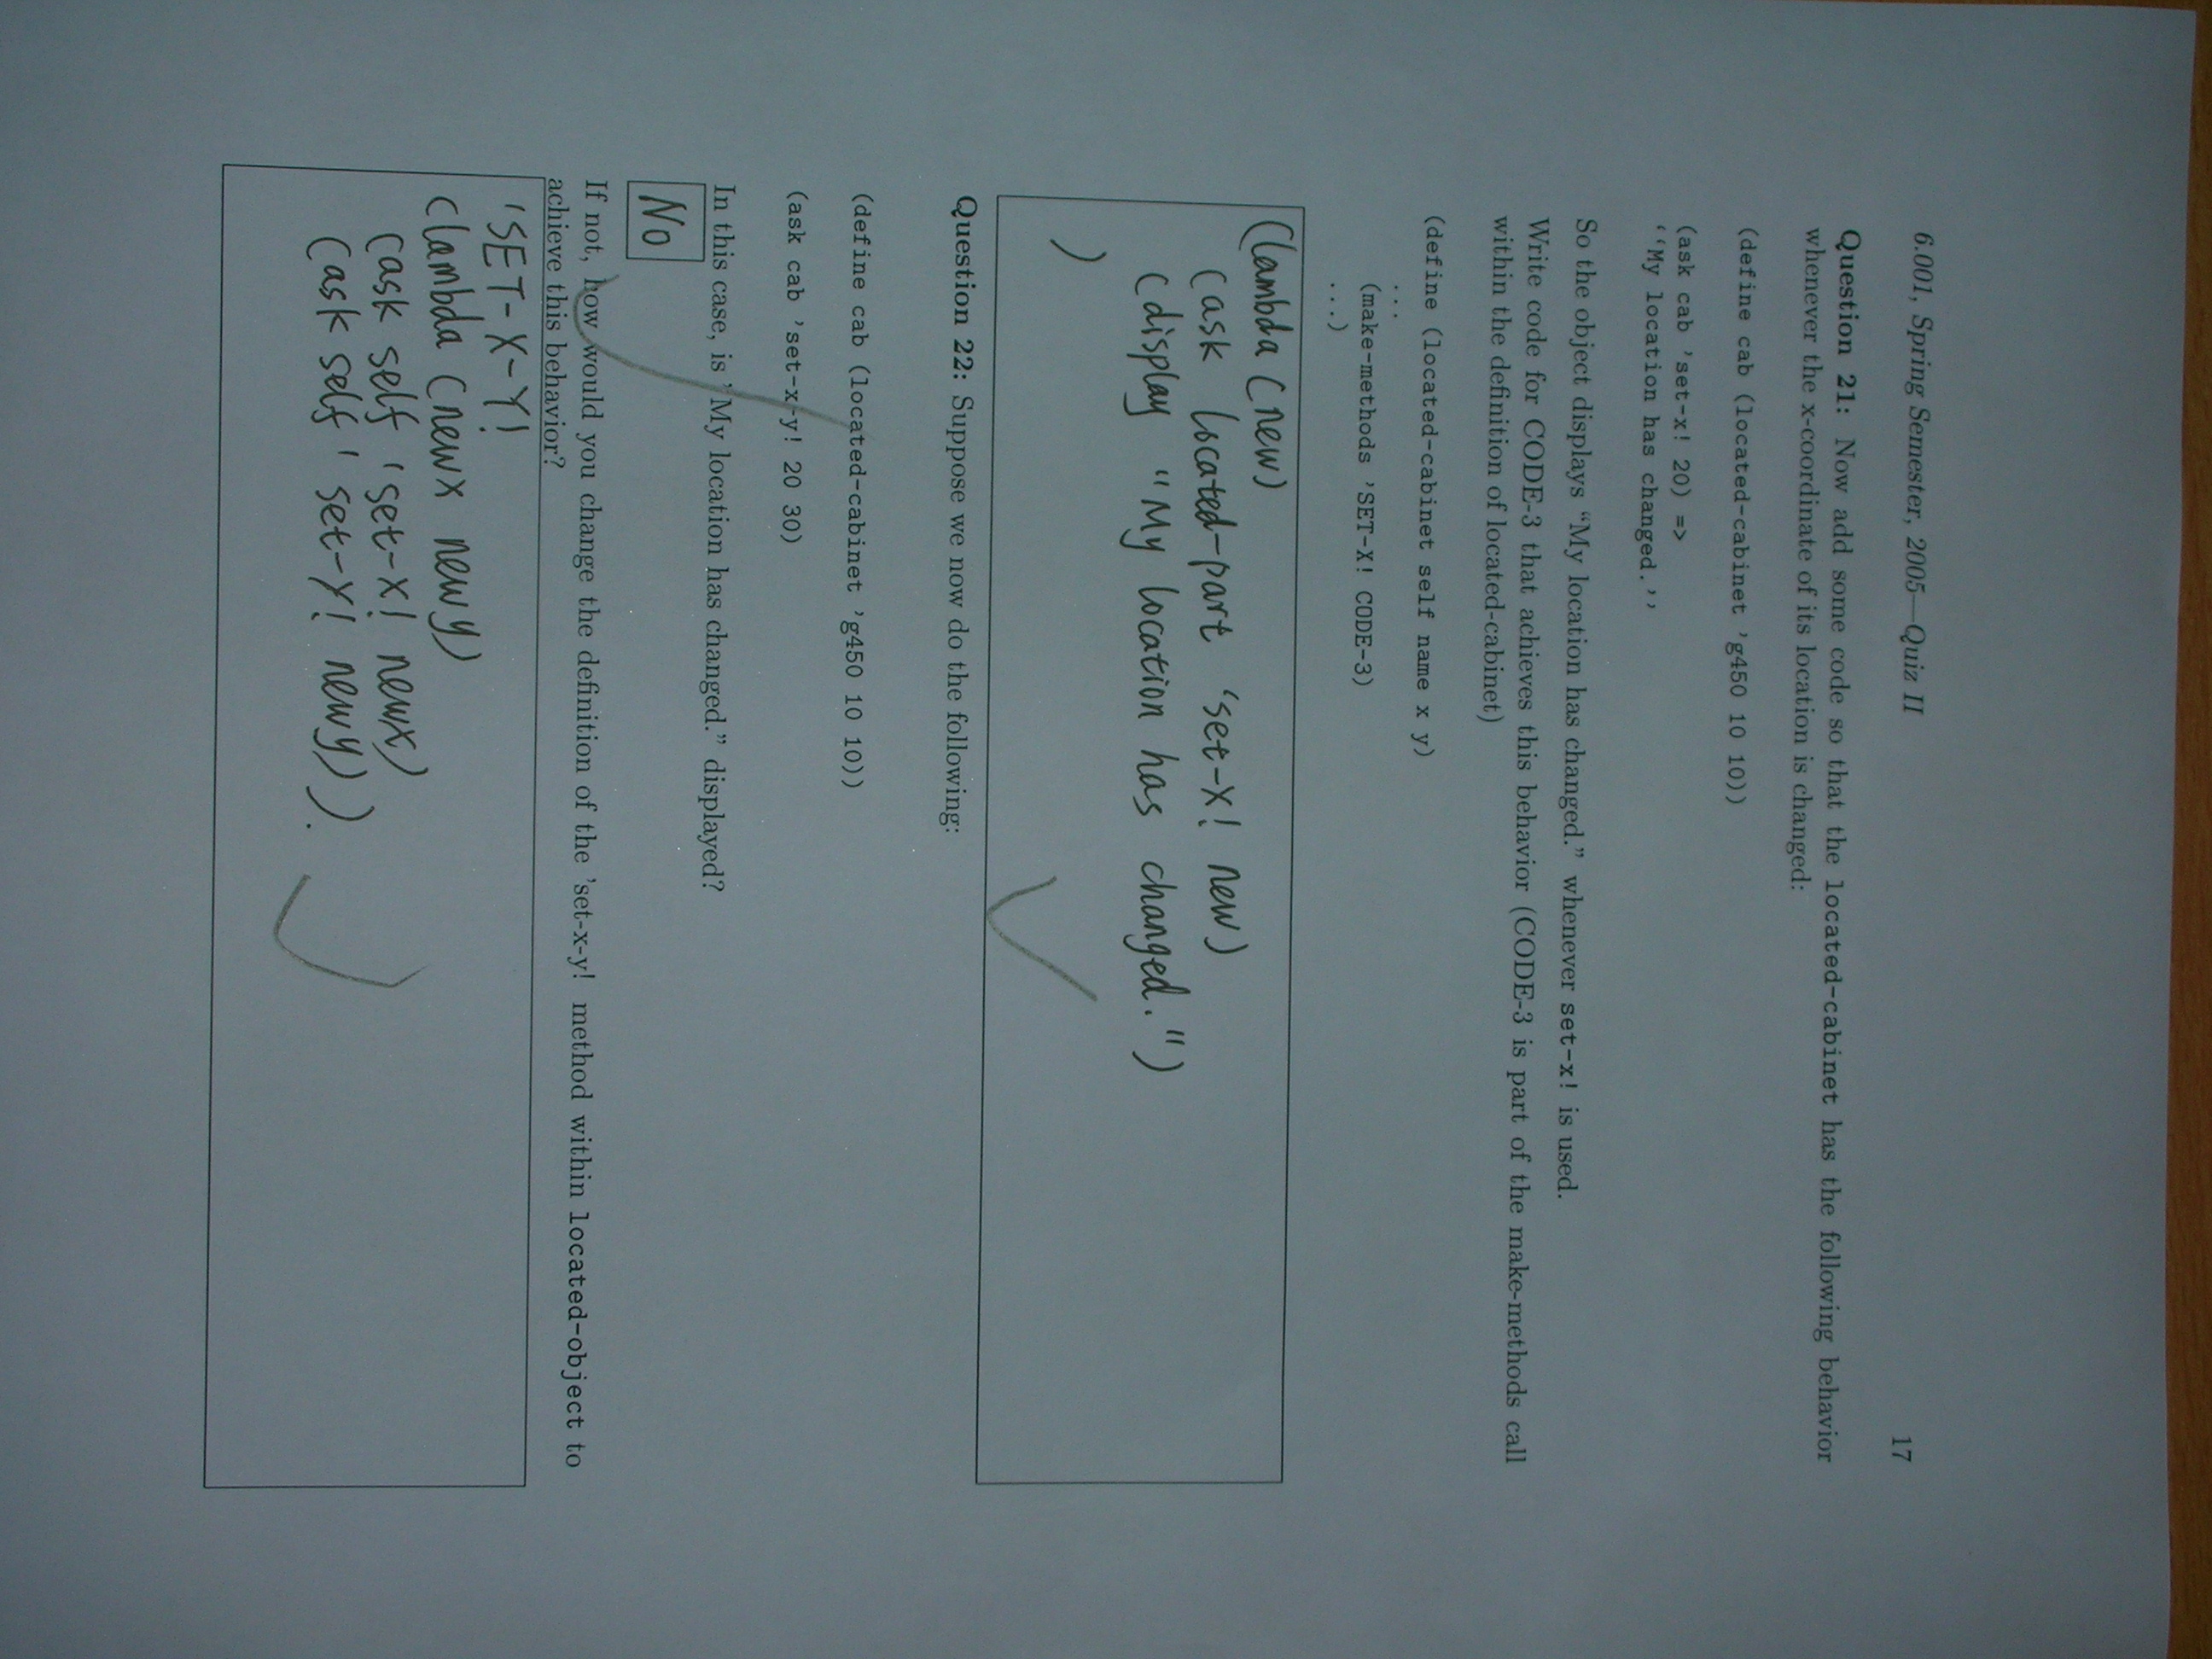 6.001, Spring Semester, 2005—Quiz II 17
Question 21: Now add some code so that the located-cabinet has the following behavior
whenever the x-coordinate of its location is changed:
(define cab (located-cabinet 'g450 10 10))
(ask cab 'set-x! 20) =>
‘‘My location has changed.’’
So the object displays “My location has changed.” whenever set-x! is used.
Write code for CODE-3 that achieves this behavior (CODE-3 is part of the make-methods call
within the definition of located-cabinet)
(define (located-cabinet self name x y)
...
(make-methods 'SET-X! CODE-3)
...)
(lambda (new)
(ask located-part 'set-X! new)
(display "My location has changed.")
)
Question 22: Suppose we now do the following:
(define cab (located-cabinet 'g450 10 10))
(ask cab 'set-x-y! 20 30)
In this case, is ”My location has changed.” displayed?
No
If not, how would you change the definition of the 'set-x-y! method within located-object to
achieve this behavior?
'SET-X-Y!
(lambda (newx newy)
(ask self 'set-X! newx)
(ask self 'set-Y! newy)).